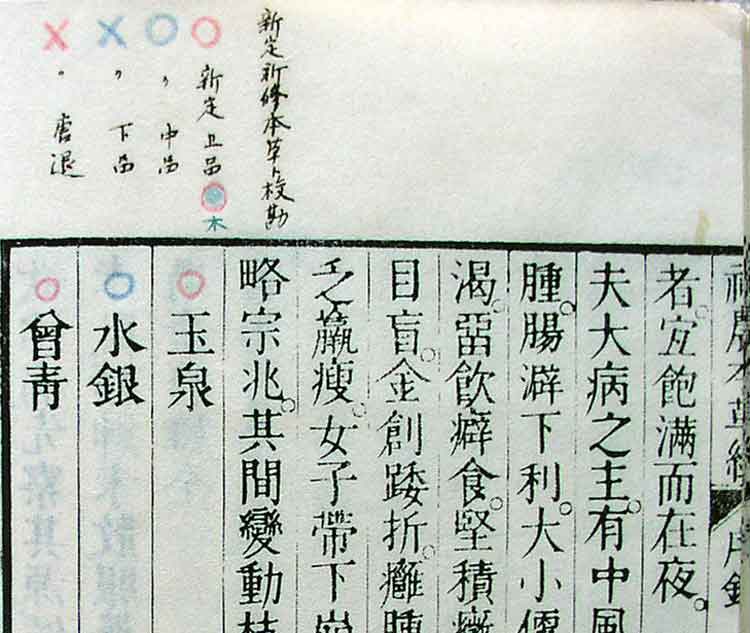 新定新修本草ト校勘
○ 新定上品 木
○ 〃 中品
× 〃 下品
× 〃 唐退
神農本草經 序錄
者。宜飽滿而在夜。
夫大病之主。有中風
腫。腸澼下利。大小便
渴。畱飲癖食。堅積癥
目盲。金創踒折。癰腫
乏羸瘦。女子帶下崩
略宗兆。其間變動枝
○玉泉
○水銀
○曾青